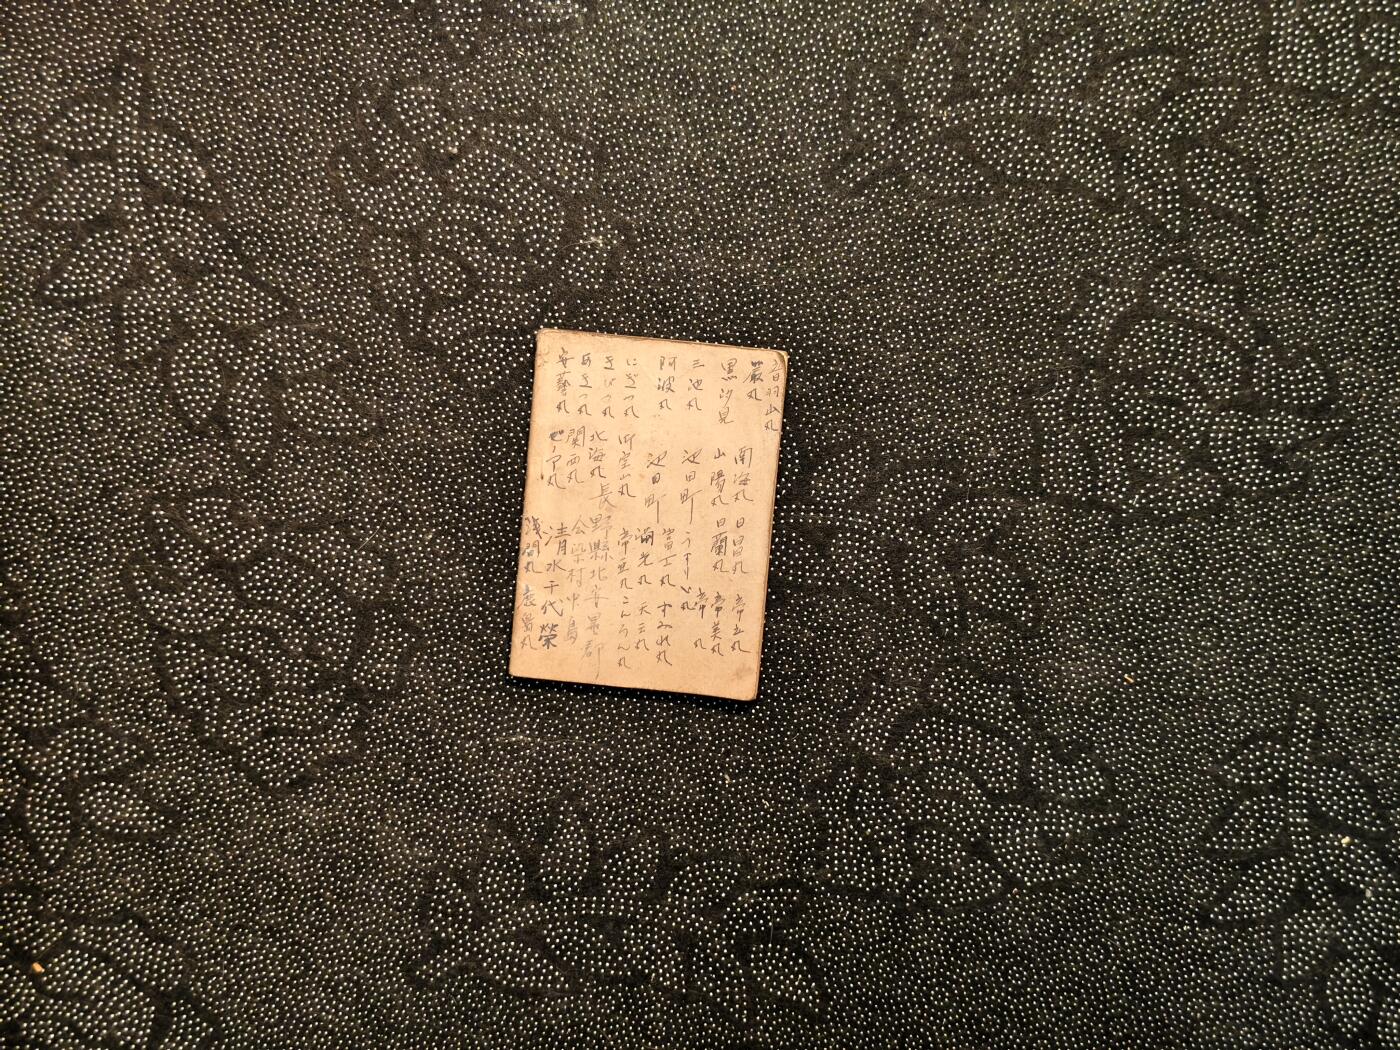 音羽山丸
巌丸
南海丸 日昌丸 帝立丸
黒沙見
山陽丸 日蘭丸 帝美丸
三池丸
池田町 うすりい丸 帝 丸
阿波丸
池田町 當丁丸 すみれ丸
満光丸 天三丸
にぎつ丸 御室山丸 帝亜丸 こんろん丸
きびつ丸 北海丸
長野縣北安曇郡
あきつ丸 関西丸
会染村中島
安藝丸
清水千代榮
浅間丸